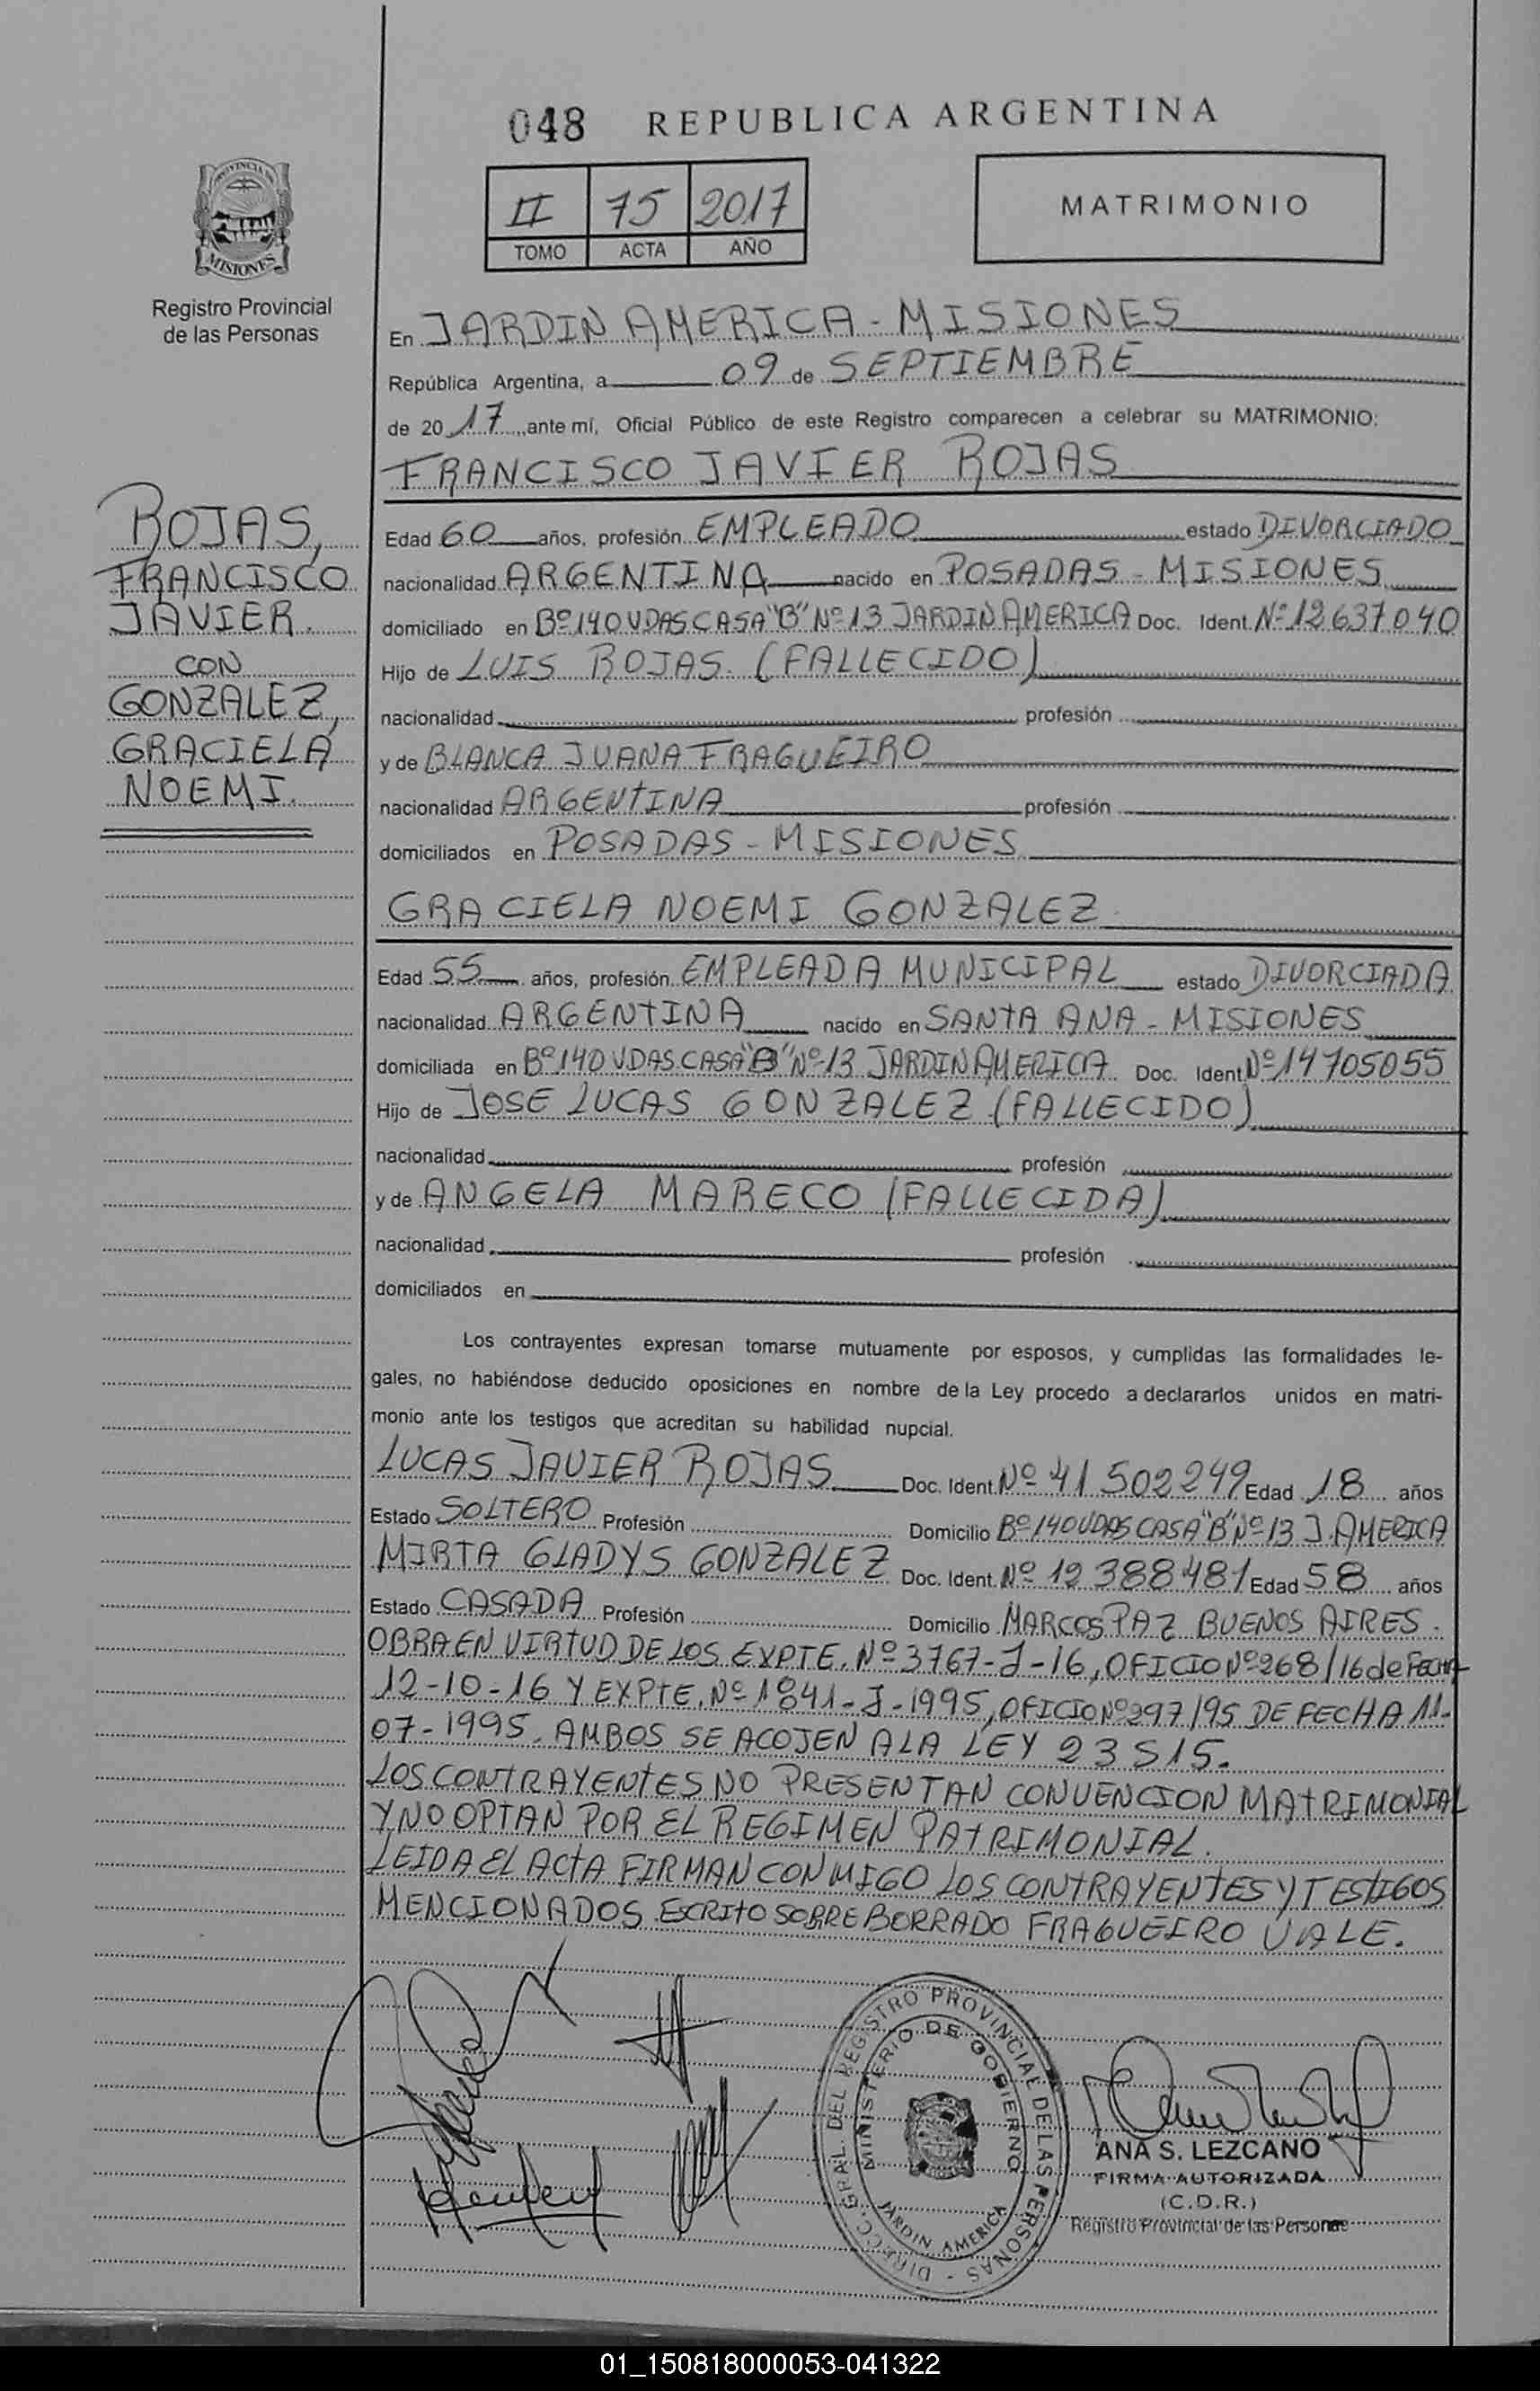 048 REPUBLICA ARGENTINA
PROVINCIA DE
MISIONES
Registro Provincial
de las Personas
II 75 2017
TOMO ACTA AÑO
MATRIMONIO
En JARDIN AMERICA - MISIONES
República Argentina, a 09 de SEPTIEMBRE
de 2017 ante mí, Oficial Público de este Registro comparecen a celebrar su MATRIMONIO:
FRANCISCO JAVIER ROJAS
ROJAS,
FRANCISCO
JAVIER.
CON
GONZALEZ,
GRACIELA
NOEMI.
Edad 60 años, profesión EMPLEADO estado DIVORCIADO
nacionalidad ARGENTINA nacido en POSADAS - MISIONES
domiciliado en Bº 140 VDAS CASA "B" Nº 13 JARDIN AMERICA Doc. Ident. Nº 12637040
Hijo de LUIS ROJAS. (FALLECIDO)
nacionalidad profesión
y de BLANCA JUANA FRAGUEIRO
nacionalidad ARGENTINA profesión
domiciliados en POSADAS - MISIONES
GRACIELA NOEMI GONZALEZ
Edad 55 años, profesión EMPLEADA MUNICIPAL estado DIVORCIADA
nacionalidad ARGENTINA nacido en SANTA ANA - MISIONES
domiciliada en Bº 140 VDAS. CASA "B" Nº 13 JARDIN AMERICA Doc. Ident. Nº 14705055
Hijo de JOSE LUCAS GONZALEZ (FALLECIDO)
nacionalidad profesión
y de ANGELA MARECO (FALLECIDA)
nacionalidad profesión
domiciliados en
Los contrayentes expresan tomarse mutuamente por esposos, y cumplidas las formalidades le-
gales, no habiéndose deducido oposiciones en nombre de la Ley procedo a declararlos unidos en matri-
monio ante los testigos que acreditan su habilidad nupcial.
LUCAS JAVIER ROJAS Doc. Ident. Nº 41 502249 Edad 18 años
Estado SOLTERO Profesión Domicilio Bº 140 VDAS CASA "B" Nº 13 J. AMERICA
MIRTA GLADYS GONZALEZ Doc. Ident. Nº 12 388481 Edad 58 años
Estado CASADA Profesión Domicilio MARCOS PAZ BUENOS AIRES.
OBRA EN VIRTUD DE LOS EXPTE. Nº 3767-J-16, OFICIO Nº 268/16 de FECHA
12-10-16 Y EXPTE. Nº 1841-J-1995, OFICIO Nº 297/95 DE FECHA 11-
07-1995. AMBOS SE ACOJEN A LA LEY 23515.
LOS CONTRAYENTES NO PRESENTAN CONVENCION MATRIMONIAL
Y NO OPTAN POR EL REGIMEN PATRIMONIAL.
LEIDA EL ACTA FIRMAN CONMIGO LOS CONTRAYENTES Y TESTIGOS
MENCIONADOS. ESCRITO SOBRE BORRADO FRAGUEIRO VALE.
DIRECC. GRAL. DEL REGISTRO PROVINCIAL DE LAS PERSONAS -
MINISTERIO DE GOBIERNO
JARDIN AMERICA
ANA S. LEZCANO
FIRMA AUTORIZADA
(C.D.R.)
Registro Provincial de las Personas
01_150818000053-041322